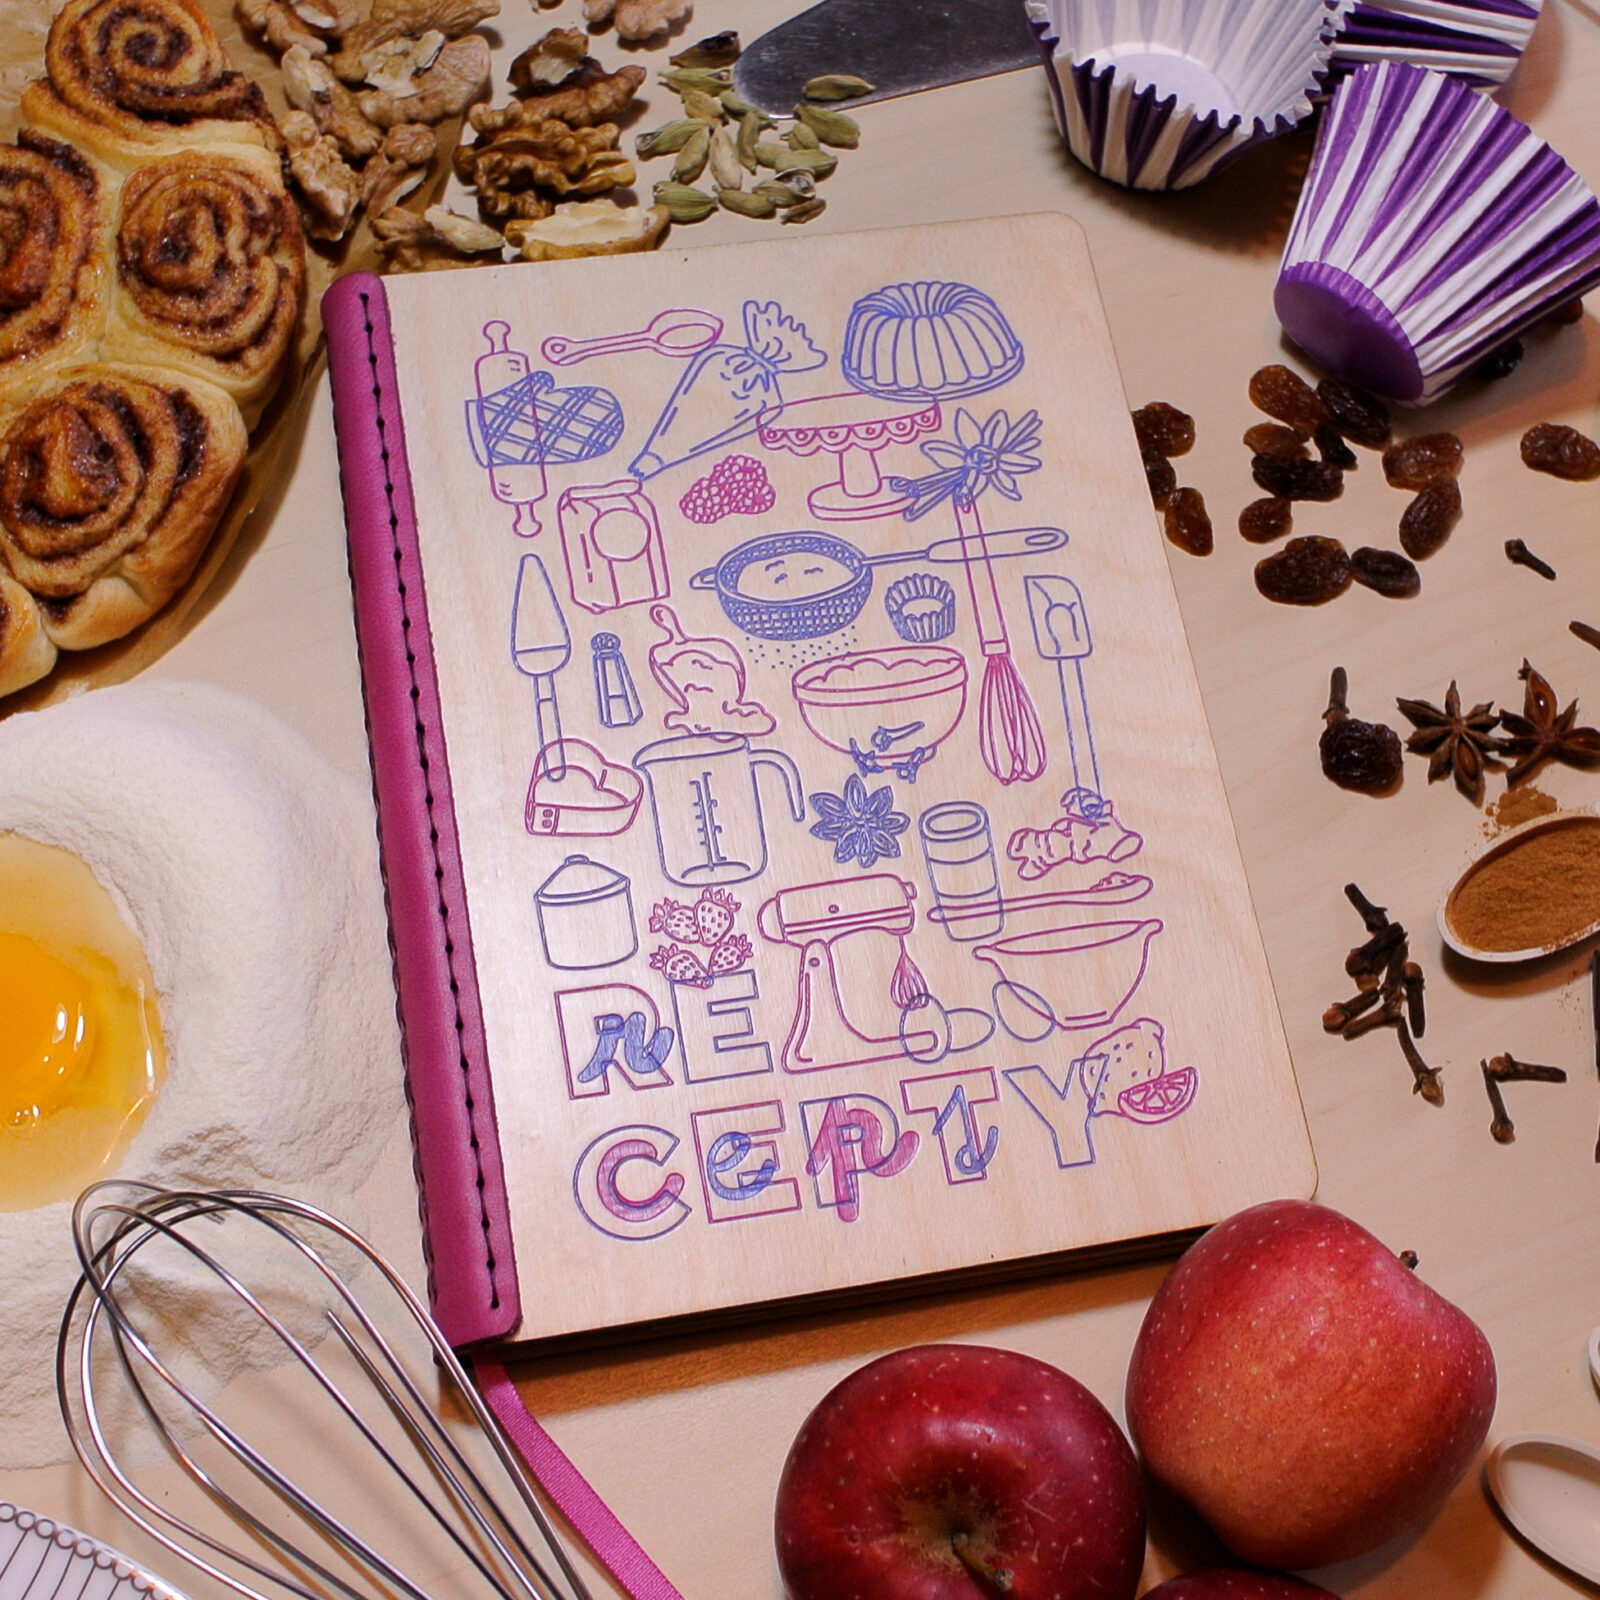 RE
CEPTY